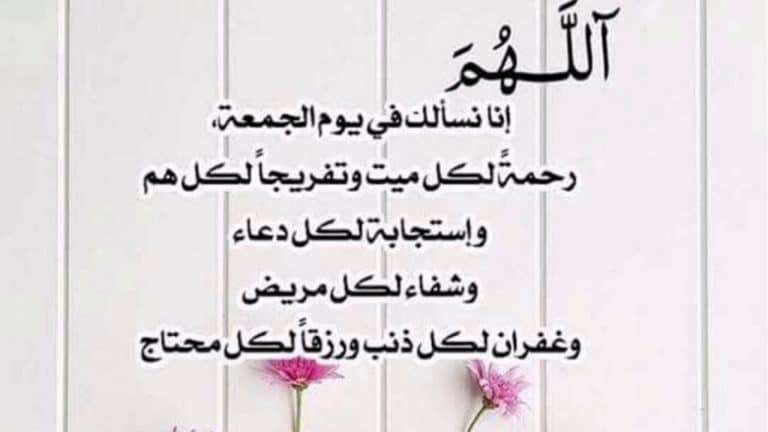 آللَّهُمَ
إنا نسألك في يوم الجمعة،
رحمةً لكل ميت وتفريجاً لكل هم
وإستجابة لكل دعاء
وشفاء لكل مريض
وغفران لكل ذنب ورزقاً لكل محتاج